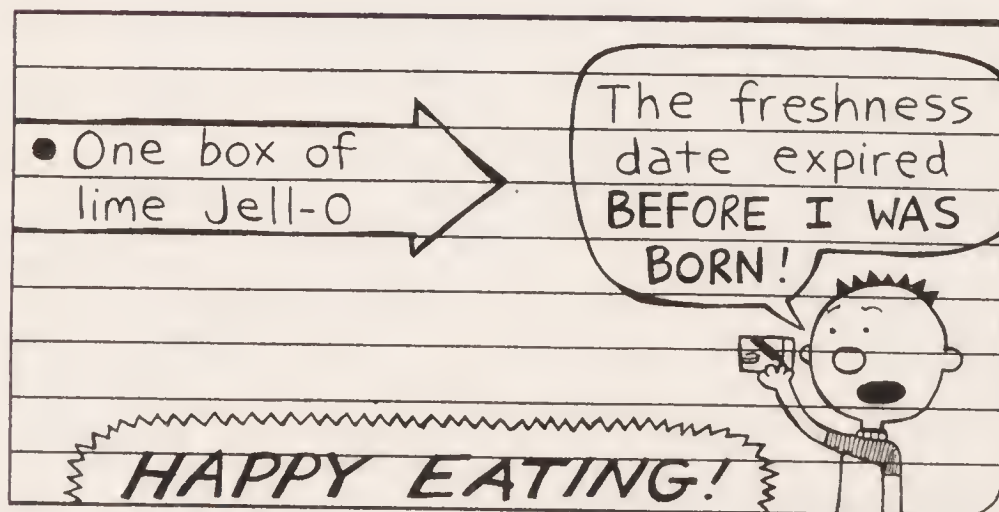 • One box of
lime Jell-O
The freshness
date expired
BEFORE I WAS
BORN!
HAPPY EATING!